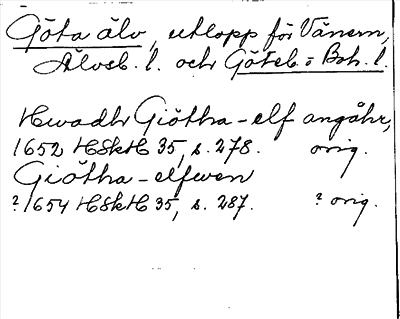 Göta älv, utlopp för Vänern,
Älvsb. l. och Göteb. o Boh. l.
Hwadh Giötha-elf angåhr,
1652 HSkH 35, s. 278. orig.
Giötha-elfwen
? 1654 HSkH 35, s. 287. ? orig.